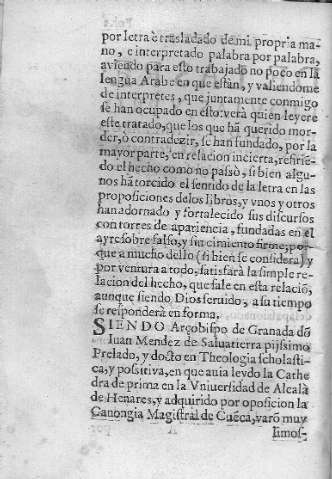 por letra è trasladado de mi propria ma-
no, e interpretado palabra por palabra,
aviendo para esto trabajado no poco en la
lengua Arabe en que estàn, y valiendome
de interpretes, que juntamente conmigo
se han ocupado en esto: verà quien leyere
este tratado, que los que hà querido mor-
der, ò contradezir, se han fundado, por la
mayor parte, en relacion incierta, refirié-
do el hecho como no passò, si bien algu-
nos hà torcido el sentido de la letra en las
proposiciones de los libros, y vnos y otros
han adornado y fortalecido sus discursos
con torres de apariencia, fundadas en el
ayre sobre falso, y sin cimiento firme, por
que a mucho dello (si bien se considera) y
por ventura a todo, satisfarà la simple re-
lacion del hecho, que sale en esta relaciõ,
aunque siendo Dios seruido, a su tiempo
se responderà en forma.
SIENDO Arçobispo de Granada dõ
Iuan Mendez de Saluatierra pijssimo
Prelado, y docto en Theologia scholasti-
ca, y positiva, en que auia leydo la Cathe
dra de prima en la Vniuersidad de Alcalà
de Henares, y adquirido por oposicion la
Canongia Magistral de Cuẽca, varõ muy
limos-